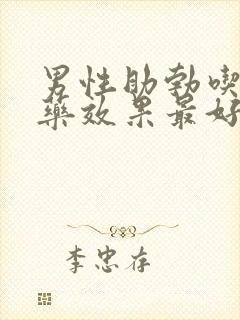 男性助勃喫
藥效果最好
李忠存